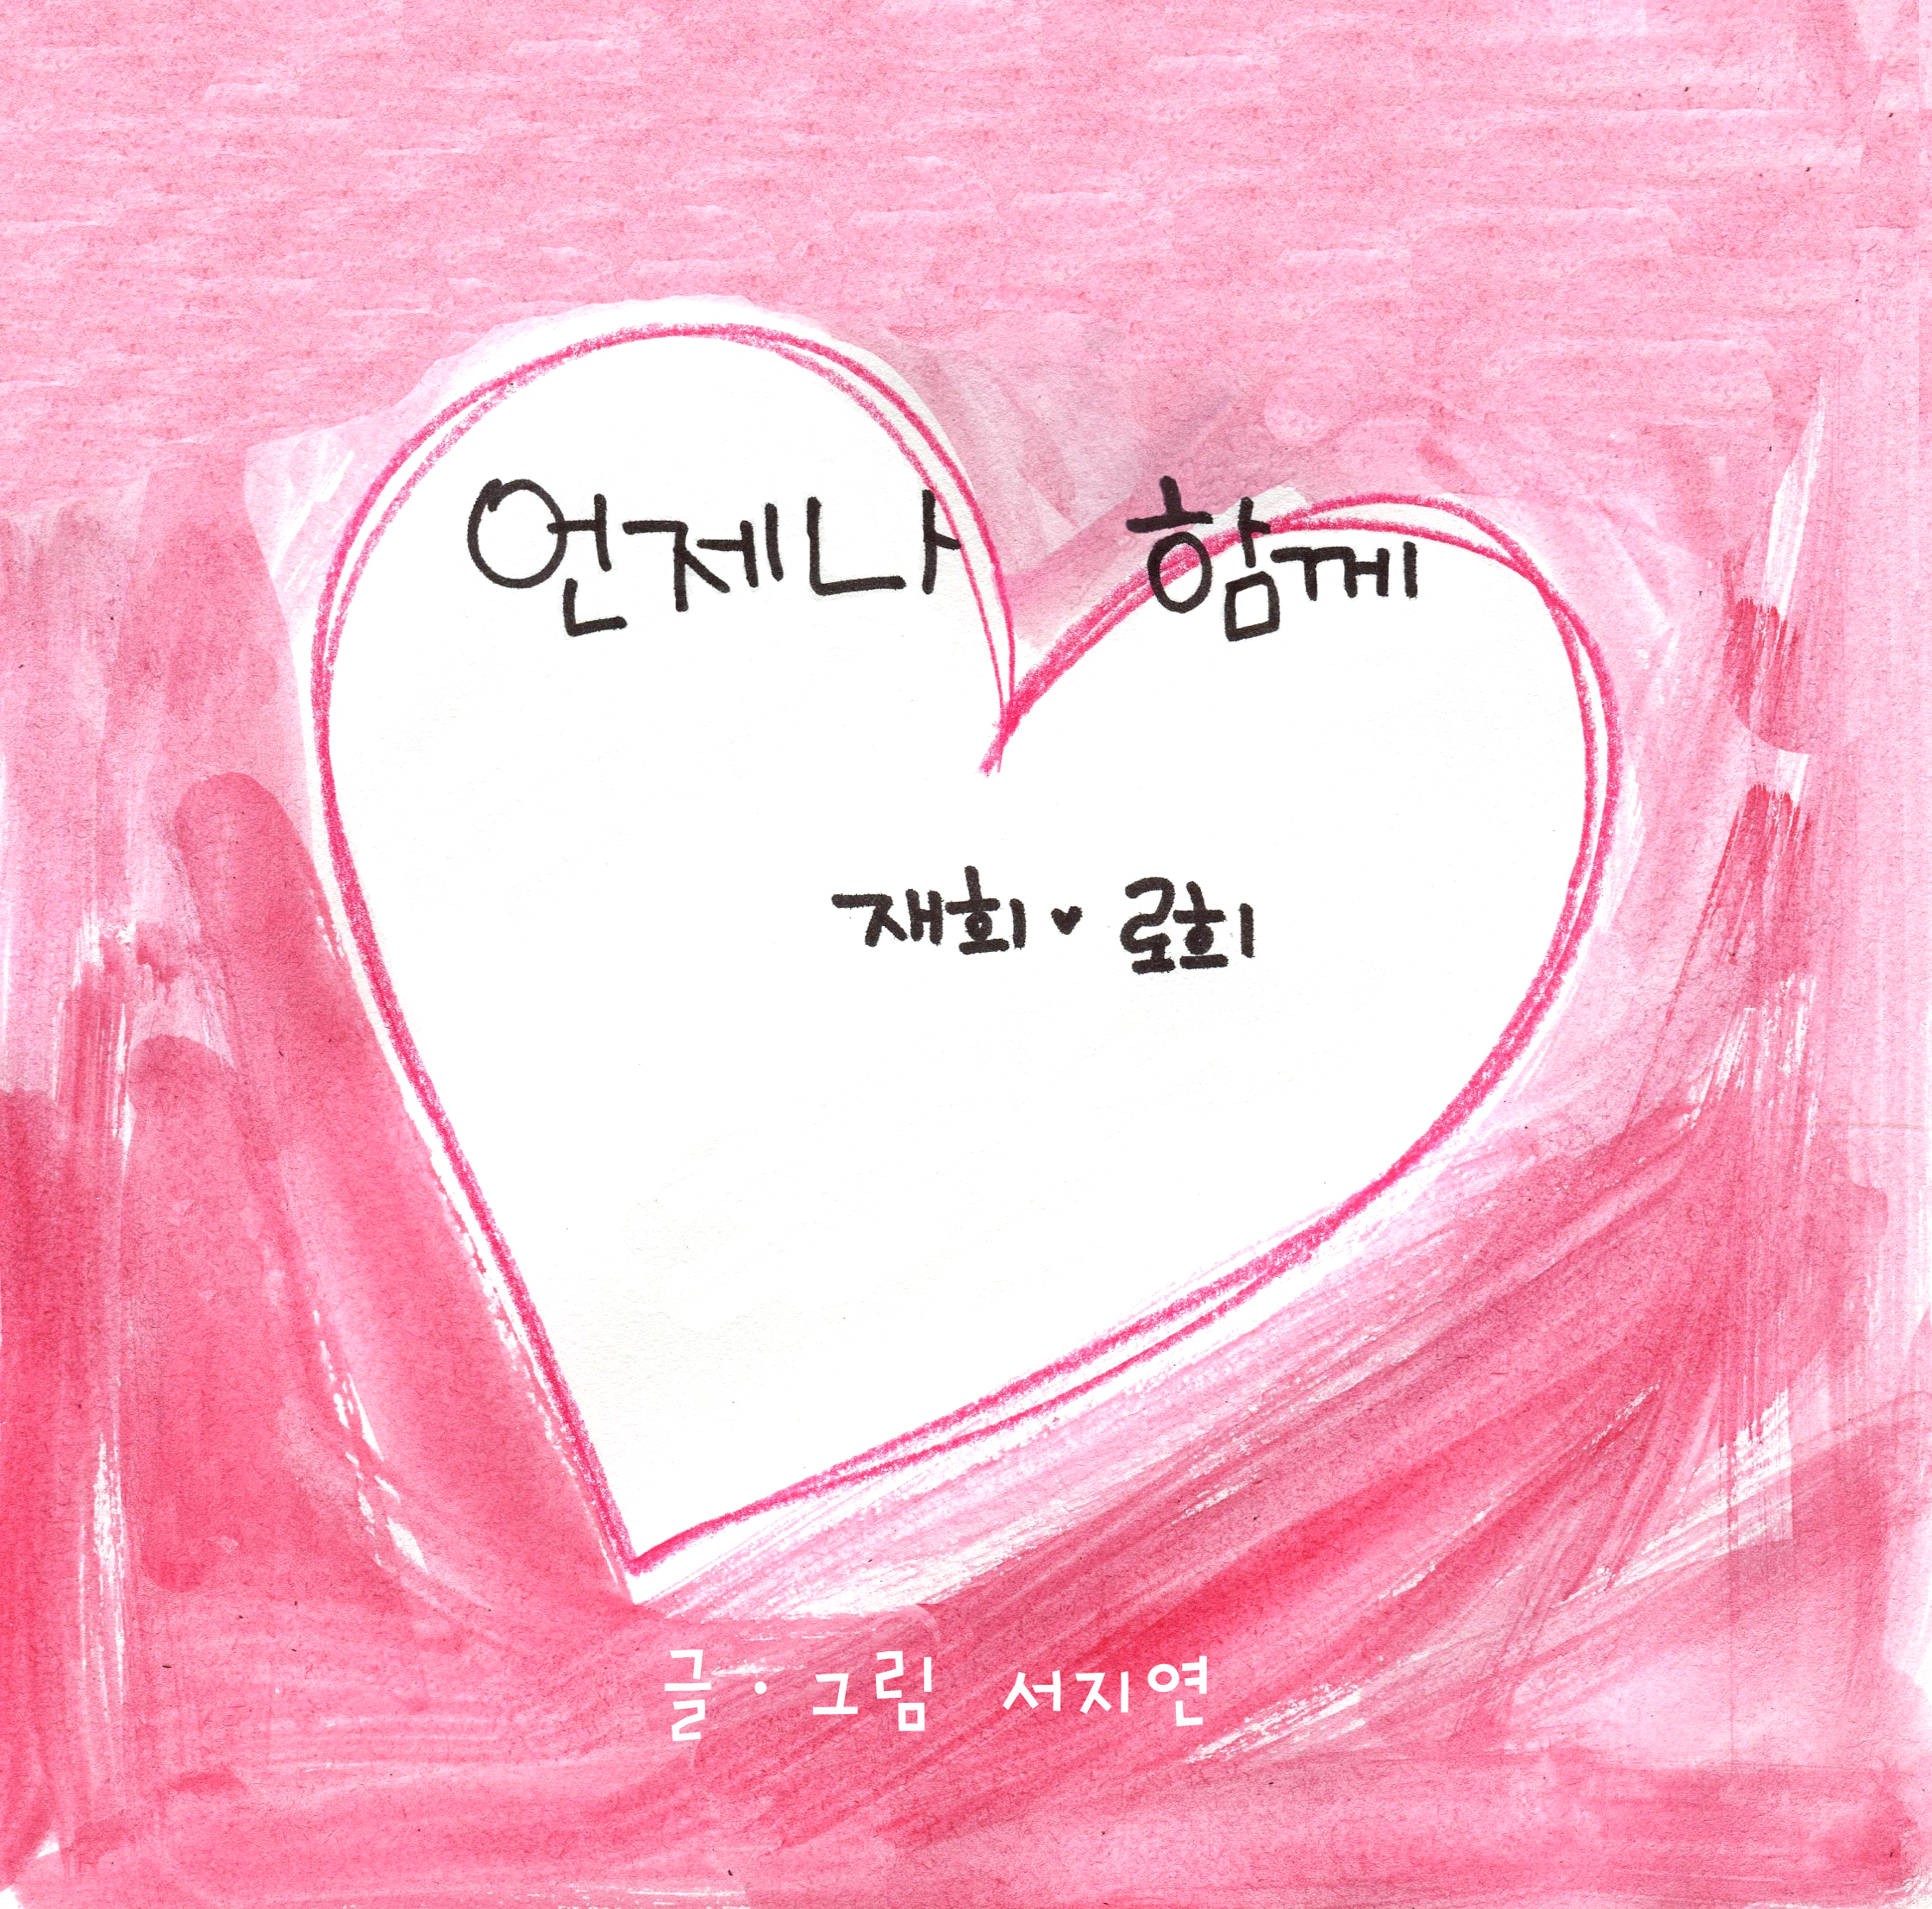 언제나 함께
재회♥로희
글·그림 서지연